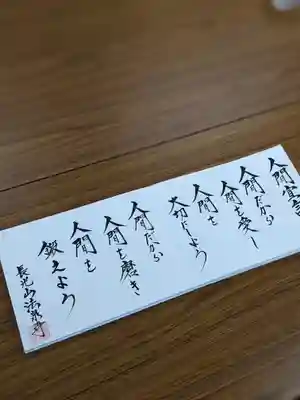 人間宣言
人間だから
人間を愛し
人間を
大切だよう
人間だから
人間を磨き
人間を
鍛えよう
長光山法泉寺